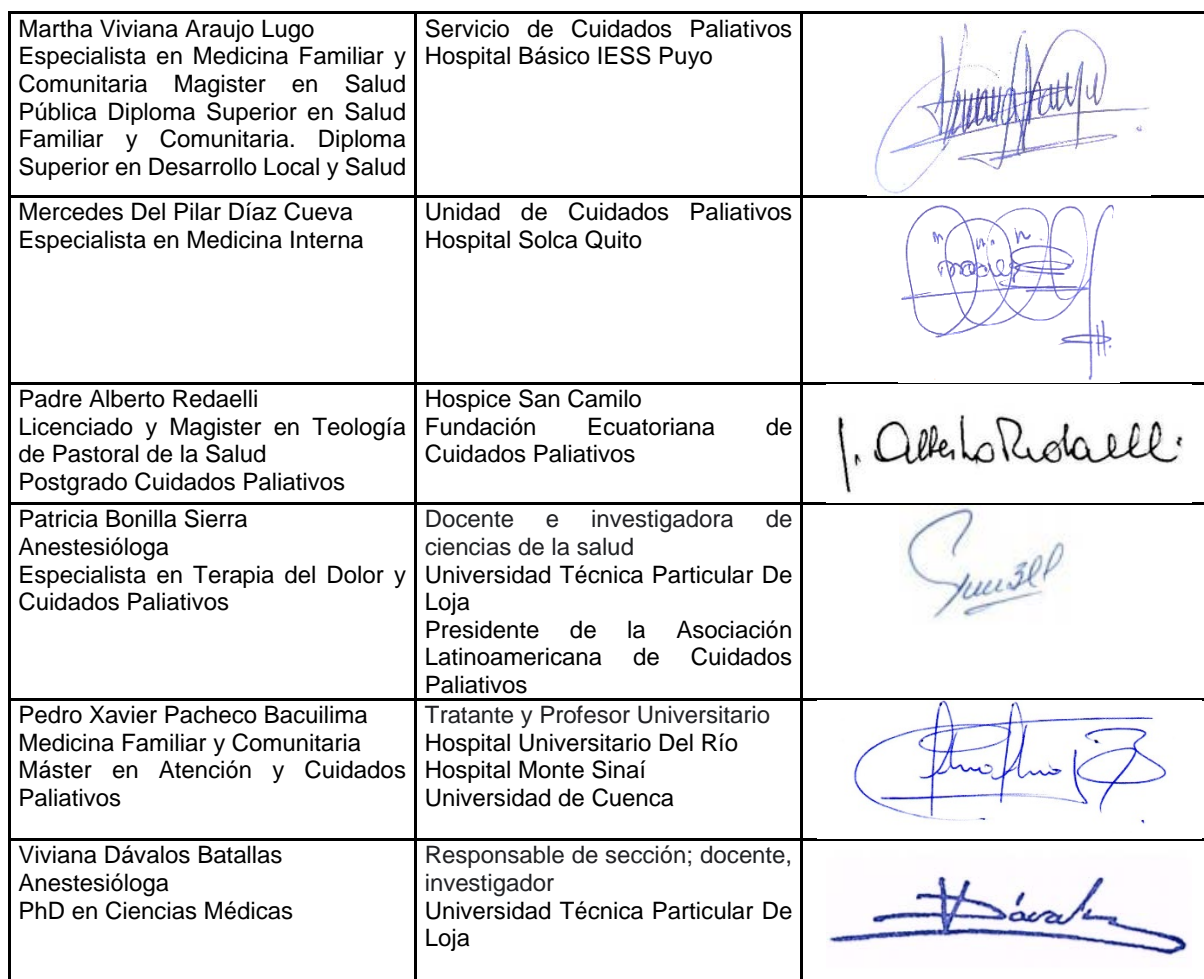 Martha Viviana Araujo Lugo
Especialista en Medicina Familiar y
Comunitaria Magister en Salud
Pública Diploma Superior en Salud
Familiar y Comunitaria. Diploma
Superior en Desarrollo Local y Salud
Servicio de Cuidados Paliativos
Hospital Básico IESS Puyo
Mercedes Del Pilar Díaz Cueva
Especialista en Medicina Interna
Unidad de Cuidados Paliativos
Hospital Solca Quito
Padre Alberto Redaelli
Licenciado y Magister en Teología
de Pastoral de la Salud
Postgrado Cuidados Paliativos
Hospice San Camilo
Fundación Ecuatoriana de
Cuidados Paliativos
Alberto Redaelli
Patricia Bonilla Sierra
Anestesióloga
Especialista en Terapia del Dolor y
Cuidados Paliativos
Docente e investigadora de
ciencias de la salud
Universidad Técnica Particular De
Loja
Presidente de la Asociación
Latinoamericana de Cuidados
Paliativos
Pedro Xavier Pacheco Bacuilima
Medicina Familiar y Comunitaria
Máster en Atención y Cuidados
Paliativos
Tratante y Profesor Universitario
Hospital Universitario Del Río
Hospital Monte Sinaí
Universidad de Cuenca
Viviana Dávalos Batallas
Anestesióloga
PhD en Ciencias Médicas
Responsable de sección; docente,
investigador
Universidad Técnica Particular De
Loja